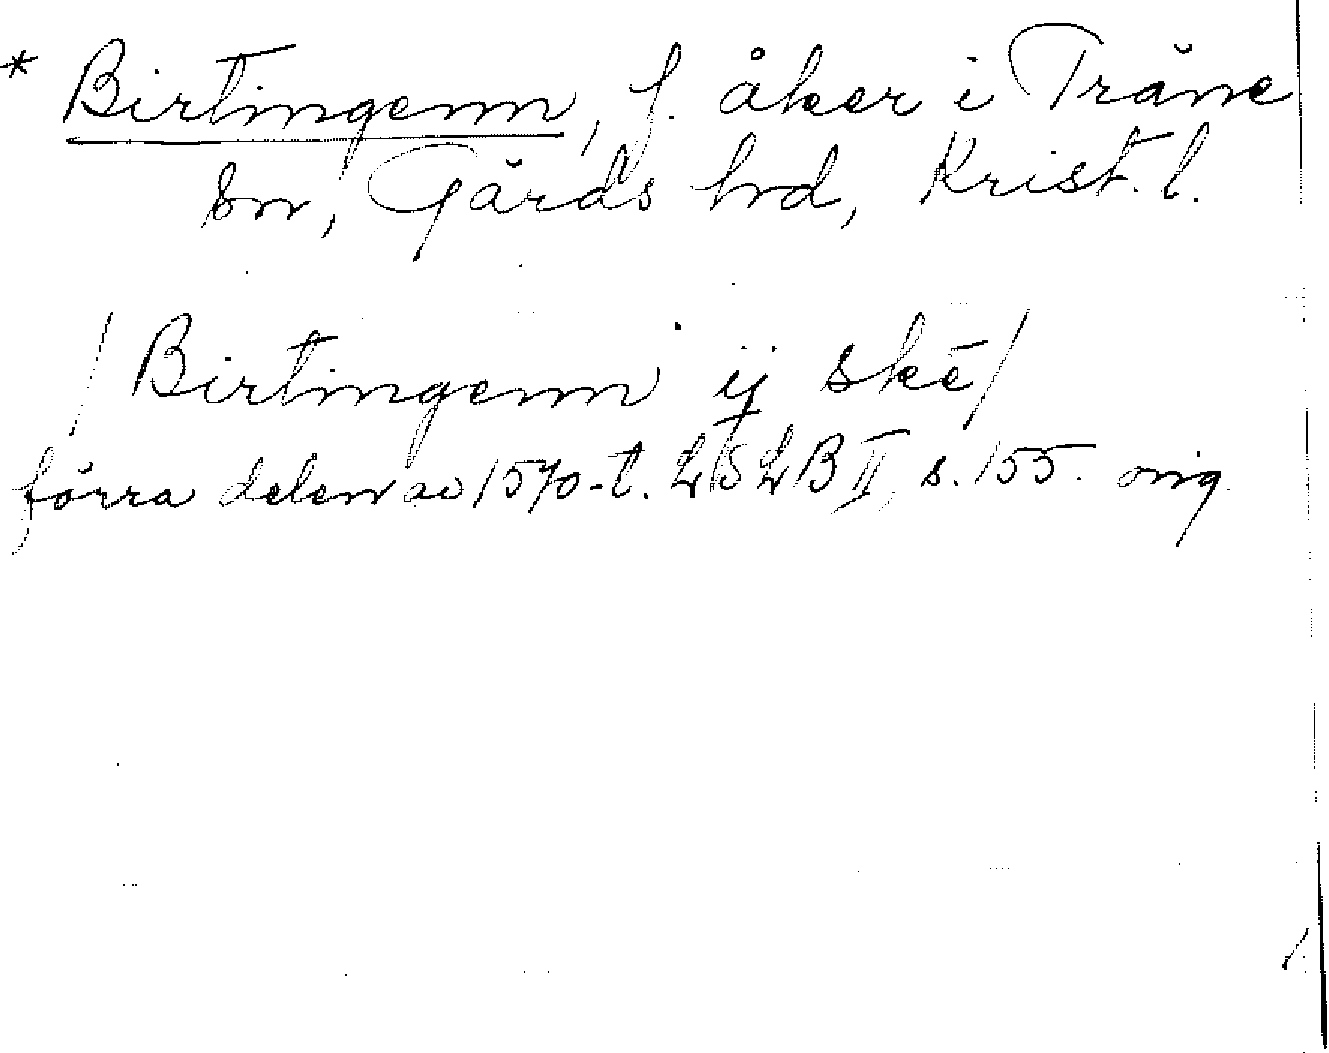 * Birtingenn, f. åker i Träne
sn, Gärds hd, Krist. l.
/ Birtingenn ij skē /
förra delen av 1570-t. LSLB II, s. 155. orig.